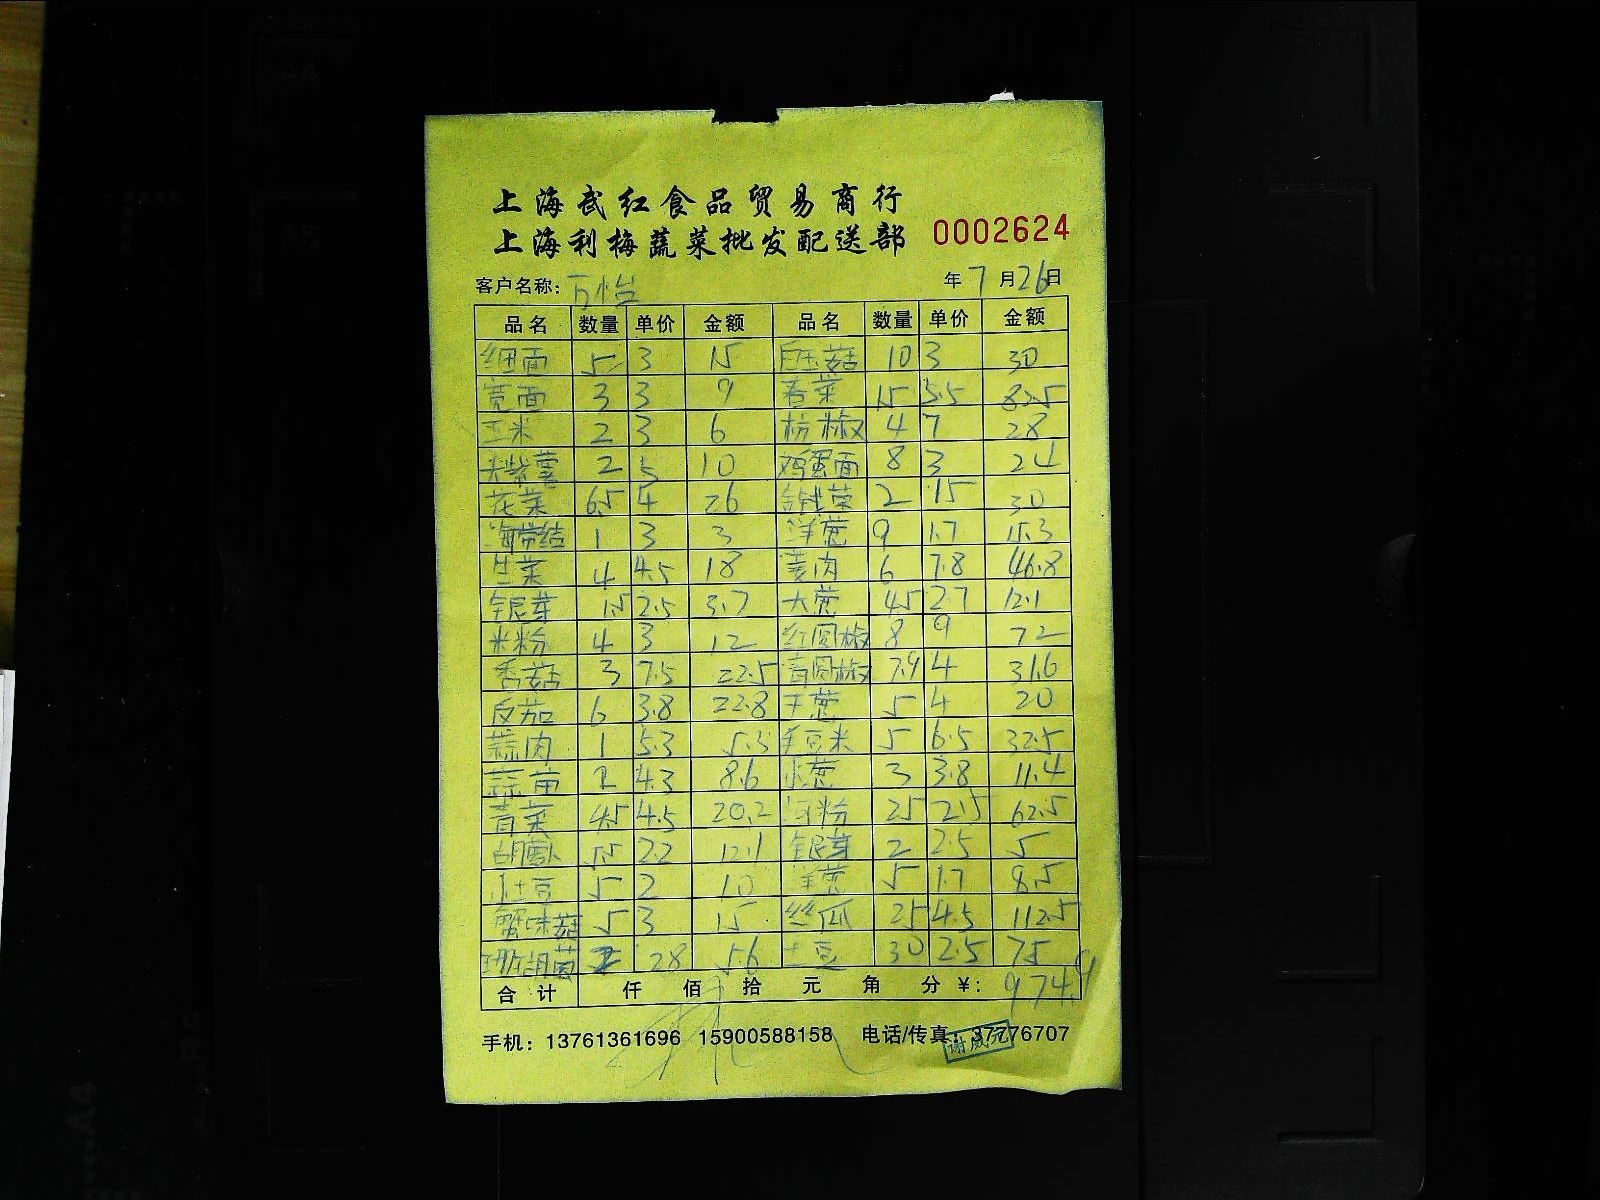 上海武红食品贸易商行
上海利梅蔬菜批发配送部 0002624
客户名称：万怡 年7月26日
品名 数量 单价 金额 品名 数量 单价 金额
细面 5 3 15 白玉菇 10 3 30
宽面 3 3 9 春菜 15 5.5 82.5
玉米 2 3 6 杭椒 4 7 28
大紫薯 2 5 10 鸡蛋面 8 3 24
花菜 6.5 4 26 2 15 30
海带结 1 3 3 洋葱 9 1.7 15.3
生菜 4 4.5 18 姜肉 6 7.8 46.8
银芽 1.5 2.5 3.7 大葱 4.5 2.7 12.1
米粉 4 3 12 红圆椒 8 9 72
香菇 3 7.5 22.5 青圆椒 7.9 4 31.6
反茄 6 3.8 22.8 干葱 5 4 20
蒜肉 1 5.3 5.3 毛豆米 5 6.5 32.5
蒜苗 2 4.3 8.6 小葱 3 3.8 11.4
青菜 4.5 4.5 20.2 河粉 25 2.5 62.5
胡萝卜 5.5 2.2 12.1 银芽 2 2.5 5
小土豆 5 2 10 洋葱 5 1.7 8.5
蟹味菇 5 3 15 丝瓜 25 4.5 112.5
2 28 56 土豆 30 2.5 75
合计 仟 佰 拾 元 角 分 ¥: 974.9
手机：13761361696 15900588158 电话/传真：37776707
谢威元